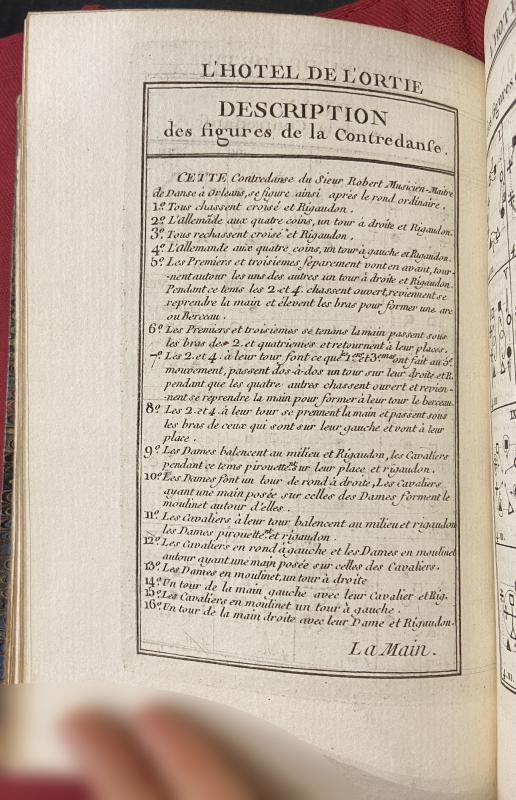 L'HOTEL DE L'ORTIE
DESCRIPTION
des figures de la Contredanse.
CETTE Contredanse du Sieur Robert Musicien-Maitre
de Danse à Orleans, se figure ainsi après le rond ordinaire.
1º. Tous chassent croisé et Rigaudon.
2º. L'allemãde aux quatre coins, un tour à droite et Rigaudon.
3º. Tous rechassent croisé et Rigaudon.
4º. L'Allemande aux quatre coins, un tour à gauche et Rigaudon.
5º. Les Premiers et troisiemes separement vont en avant, tour-
-nent autour les uns des autres un tour à droite et Rigaudon.
Pendant ce tems les 2. et 4. chassent ouvert, reviennent se
reprendre la main et élevent les bras pour former une arc
ou Berceau.
6º. Les Premiers et troisiemes se tenans la main passent sous
les bras des 2. et quatriemes et retournent à leur places.
7º. Les 2. et 4. à leur tour font ce que les 1ers et 3emes ont fait au 5e.
mouvement, passent dos-à-dos un tour sur leur droite et R.
pendant que les quatre autres chassent ouvert et revien-
-nent se reprendre la main pour former à leur tour le berceau.
8º. Les 2. et 4. à leur tour se prennent la main et passent sous
les bras de ceux qui sont sur leur gauche et vont à leur
place.
9º. Les Dames balencent au milieu et Rigaudon, les Cavaliers
pendant ce tems pirouettent sur leur place et rigaudon.
10º. Les Dames font un tour de rond à droite, Les Cavaliers
ayant une main posée sur celles des Dames forment le
moulinet autour d'elles.
11º. Les Cavaliers à leur tour balencent au milieu et rigaudon
les Dames pirouettent et rigaudon.
12º. Les Cavaliers en rond à gauche et les Dames en moulinet
autour ayant une main posée sur celles des Cavaliers.
13º. Les Dames en moulinet, un tour à droite
14º. Un tour de la main gauche avec leur Cavalier et Rig.
15º. Les Cavaliers en moulinet un tour à gauche.
16º. Un tour de la main droite avec leur Dame et Rigaudon.
La Main.